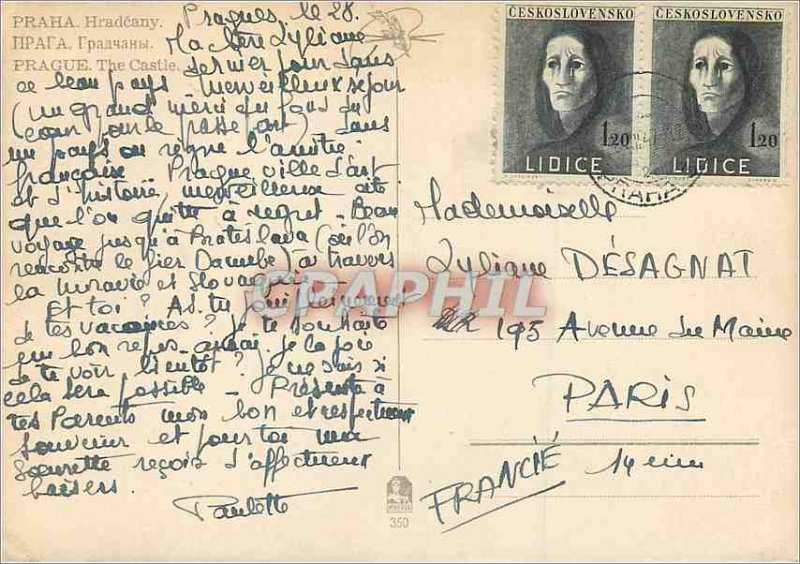 PRAHA. Hradčany.
ПРАГА. Градчаны.
PRAGUE. The Castle.
Pragues, le 28.
Ma chère Lyliane
dernier jour dans
ce beau pays merveilleux séjour
(un grand merci du fond du
cœur pour le passe) dans
un pays où règne l'amitié
française Prague ville d'art
et d'histoire, merveilleuse cité
que l'on quitte à regret - Beau
voyage jusqu'à Bratislava (où l'on
rencontre le fier Danube) à travers
la Moravie et Slovaquie -
Et toi ? As-tu
de tes vacances ? Je te souhaite
un bon repos - aurai-je la joie
de te voir bientôt ? Je ne sais si
cela sera possible - Présente à
tes Parents mon bon et respectueux
souvenir et pour toi ma
Sœurette reçois d'affectueux
baisers.
Paulette
ČESKOSLOVENSKO
1.20
LIDICE
ČESKOSLOVENSKO
1.20
LIDICE
PRAHA
Mademoiselle
Lyliane DÉSAGNAT
195 Avenue du Maine
PARIS
14 ème
FRANCIE
350
CPAPHIL